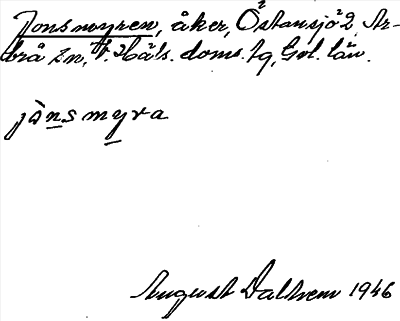 Jonsmyren, åker, Östansjö 2, Ar-
brå sn, V. Häls. doms. tg, Gvl. län.
jònsmyra
August Dalhem 1946